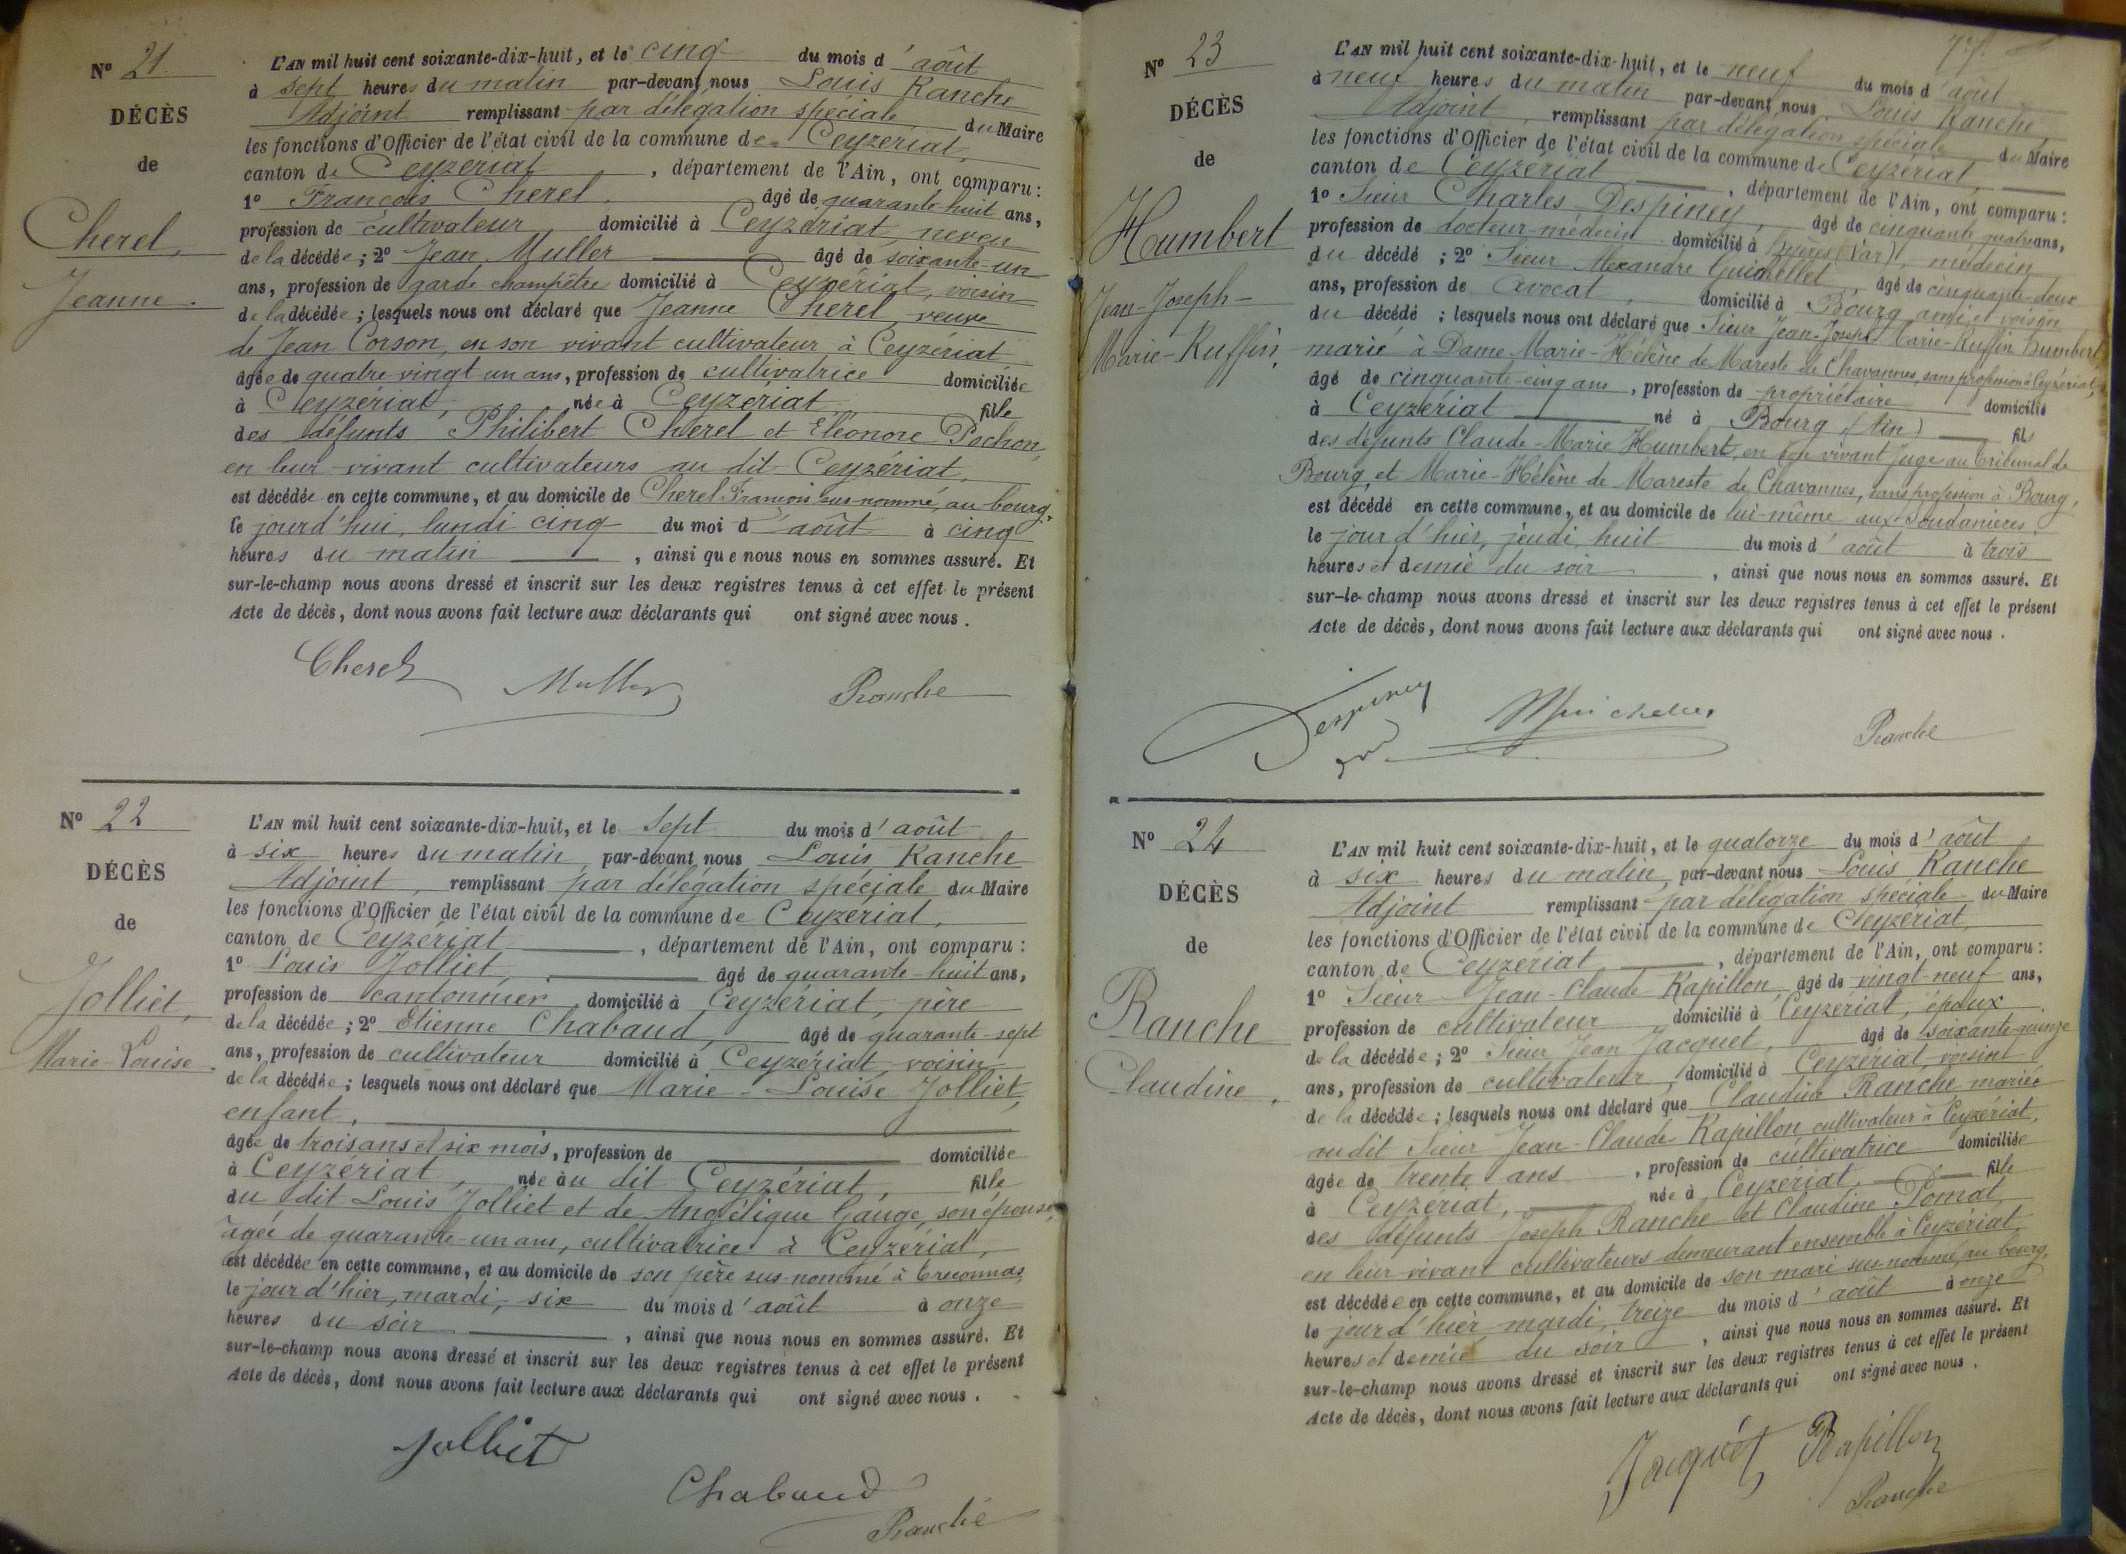 Nº 21
DÉCÈS
de
Cherel,
Jeanne.
L'AN mil huit cent soixante-dix-huit, et le cinq du mois d'août
à sept heures du matin par-devant nous Louis Ranche
Adjoint remplissant par délégation spéciale du Maire
les fonctions d'Officier de l'état civil de la commune de Ceyzériat,
canton de Ceyzériat, département de l'Ain, ont comparu :
1º François Cherel, âgé de quarante-huit ans,
profession de cultivateur domicilié à Ceyzériat, neveu
de la décédée ; 2º Jean Muller âgé de soixante-un
ans, profession de garde champêtre domicilié à Ceyzériat, voisin
de la décédée ; lesquels nous ont déclaré que Jeanne Cherel, veuve
de Jean Corson, en son vivant cultivateur à Ceyzériat
âgée de quatre vingt un ans, profession de cultivatrice domiciliée
à Ceyzériat, née à Ceyzériat, fille
des défunts Philibert Cherel et Eléonore Pochon,
en leur vivant cultivateurs au dit Ceyzériat,
est décédée en cette commune, et au domicile de Cherel François sus-nommé, au bourg,
le jourd'hui, lundi cinq du moi d'août à cinq
heures du matin, ainsi que nous nous en sommes assuré. Et
sur-le-champ nous avons dressé et inscrit sur les deux registres tenus à cet effet le présent
Acte de décès, dont nous avons fait lecture aux déclarants qui ont signé avec nous.
Cherel Muller Ranche
Nº 22
DÉCÈS
de
Jolliet,
Marie-Louise.
L'AN mil huit cent soixante-dix-huit, et le sept du mois d'août
à six heures du matin, par-devant nous Louis Ranche
Adjoint, remplissant par délégation spéciale du Maire
les fonctions d'Officier de l'état civil de la commune de Ceyzériat,
canton de Ceyzériat, département de l'Ain, ont comparu :
1º Louis Jolliet, âgé de quarante-huit ans,
profession de cantonnier, domicilié à Ceyzériat, père
de la décédée ; 2º Etienne Chabaud, âgé de quarante-sept
ans, profession de cultivateur domicilié à Ceyzériat, voisin
de la décédée ; lesquels nous ont déclaré que Marie-Louise Jolliet,
enfant,
âgée de trois ans et six mois, profession de domiciliée
à Ceyzériat, née au dit Ceyzériat, fille
du dit Louis Jolliet et de Angélique Gauge, son épouse,
âgée de quarante-un ans, cultivatrice à Ceyzériat,
est décédée en cette commune, et au domicile de son père sus-nommé à Treconnas,
le jour d'hier, mardi, six du mois d'août à onze
heures du soir, ainsi que nous nous en sommes assuré. Et
sur-le-champ nous avons dressé et inscrit sur les deux registres tenus à cet effet le présent
Acte de décès, dont nous avons fait lecture aux déclarants qui ont signé avec nous.
Jolliet
Chabaud
Ranche
Nº 23
DÉCÈS
de
Humbert
Jean-Joseph-
Marie-Ruffin,
L'AN mil huit cent soixante-dix-huit, et le neuf du mois d'août
à neuf heures du matin par-devant nous Louis Ranche,
Adjoint, remplissant par délégation spéciale du Maire
les fonctions d'Officier de l'état civil de la commune de Ceyzériat,
canton de Ceyzériat, département de l'Ain, ont comparu :
1º Sieur Charles Despiney, âgé de cinquante quatre ans,
profession de docteur-médecin domicilié à hyères (Var), médecin
du décédé ; 2º Sieur Alexandre Guichellet, âgé de cinquante-deux
ans, profession de avocat, domicilié à Bourg, ami et voisin
du décédé ; lesquels nous ont déclaré que Sieur Jean-Joseph Marie-Ruffin Humbert,
marié à Dame Marie-Hélène de Mareste de Chavannes, sans profession à Ceyzériat,
âgé de cinquante-cinq ans, profession de propriétaire domicilié
à Ceyzériat né à Bourg (Ain) fils
des défunts Claude-Marie Humbert, en son vivant juge au tribunal de
Bourg, et Marie-Hélène de Mareste de Chavannes, sans profession à Bourg,
est décédé en cette commune, et au domicile de lui-même aux Soudanières
le jour d'hier, jeudi, huit du mois d'août à trois
heures et demie du soir, ainsi que nous nous en sommes assuré. Et
sur-le-champ nous avons dressé et inscrit sur les deux registres tenus à cet effet le présent
Acte de décès, dont nous avons fait lecture aux déclarants qui ont signé avec nous.
Despiney Ranche
Nº 24
DÉCÈS
de
Ranche
Claudine.
L'AN mil huit cent soixante-dix-huit, et le quatorze du mois d'août
à six heures du matin, par-devant nous Louis Ranche
Adjoint remplissant par délégation spéciale du Maire
les fonctions d'Officier de l'état civil de la commune de Ceyzériat,
canton de Ceyzériat, département de l'Ain, ont comparu :
1º Sieur Jean-Claude Rapillon, âgé de vingt-neuf ans,
profession de cultivateur domicilié à Ceyzériat, époux
de la décédée ; 2º Sieur Jean Jacquet, âgé de soixante-quinze
ans, profession de cultivateur, domicilié à Ceyzériat, voisin
de la décédée ; lesquels nous ont déclaré que Claudine Ranche mariée
au dit Sieur Jean-Claude Rapillon cultivateur à Ceyzériat,
âgée de trente ans, profession de cultivatrice domiciliée
à Ceyzériat, née à Ceyzériat, fille
des défunts Joseph Ranche et Claudine Pomat,
en leur vivant cultivateurs demeurant ensemble à Ceyzériat,
est décédée en cette commune, et au domicile de son mari sus-nommé, au bourg,
le jour d'hier mardi, treize du mois d'août à onze
heures et demie du soir, ainsi que nous nous en sommes assuré. Et
sur-le-champ nous avons dressé et inscrit sur les deux registres tenus à cet effet le présent
Acte de décès, dont nous avons fait lecture aux déclarants qui ont signé avec nous.
Jacquet Rapillon
Ranche